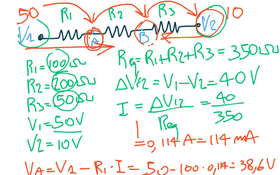 50 R1 R2 R3 10
V1 A B V2
R1 = 100Ω
R2 = 200Ω
R3 = 50Ω
V1 = 50V
V2 = 10V
Req = R1 + R2 + R3 = 350Ω
ΔV12 = V1 - V2 = 40V
I = ΔV12 / Req = 40 / 350
I = 0,114 A = 114 mA
VA = V1 - R1 · I = 50 - 100 · 0,114 = 38,6V